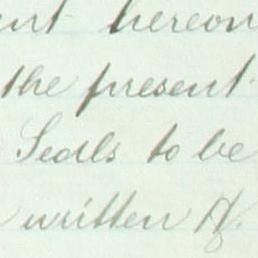 hereon
the present
Seals to be
written